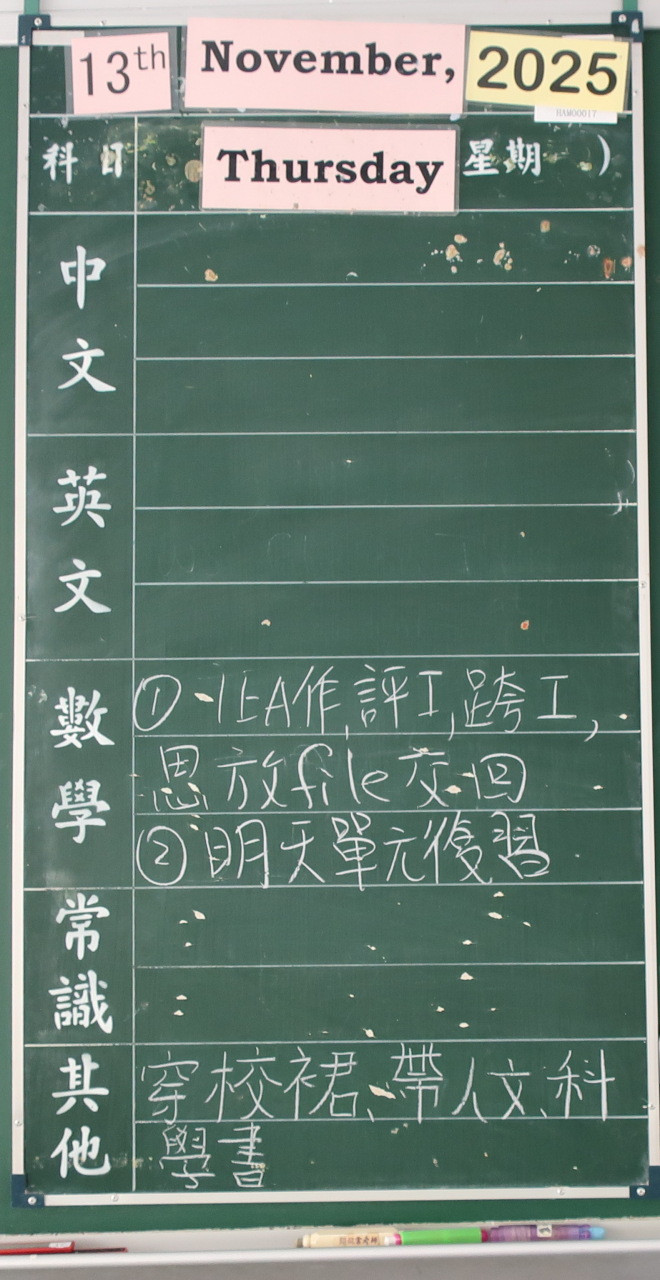 13th November, 2025
RAM00017
科目 Thursday 星期 )
中文
英文
數學
① 上A作,評工,跨工,
思放file交回
②明天單元復習
常識
其他
穿校裙、帶人文、科
學書